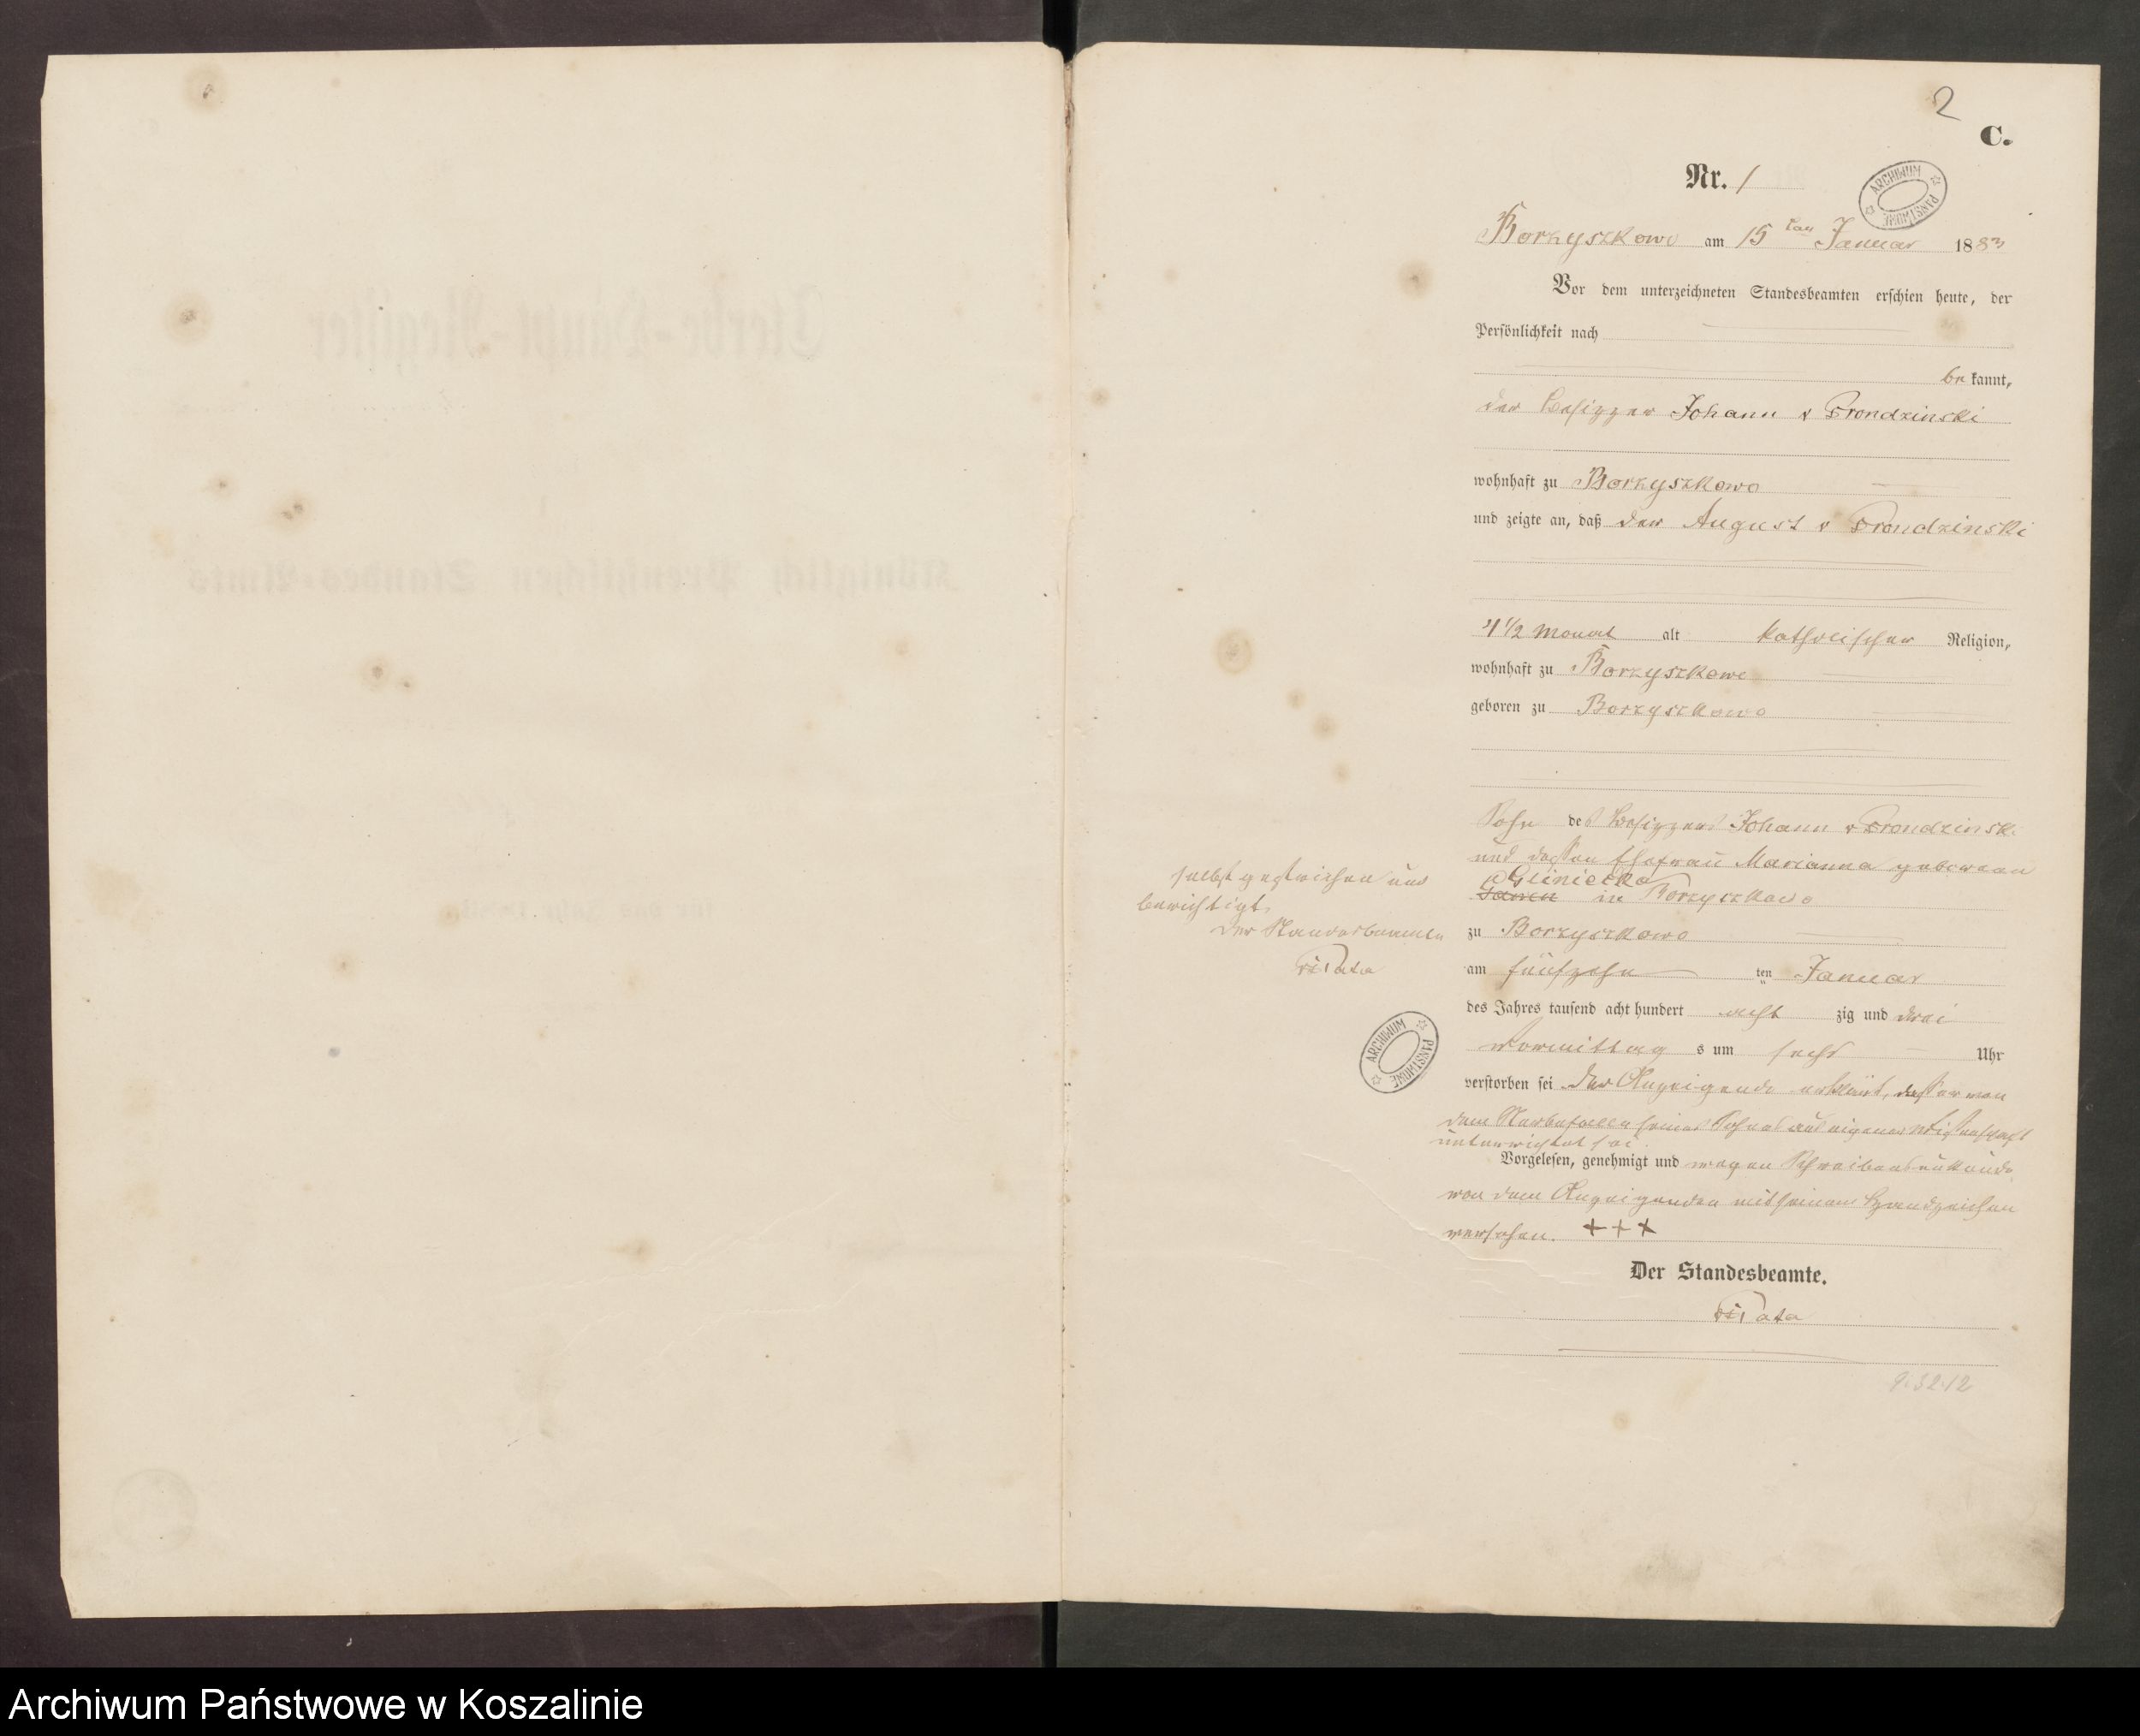 2
C.
Nr. 1
ARCHIWUM PAŃSTWOWE
Borzyszkowo am 15 ten Januar 1883
Vor dem unterzeichneten Standesbeamten erschien heute, der
Persönlichkeit nach
be kannt,
der Besitzer Johann v Prondzinski
wohnhaft zu Borzyszkowo
und zeigte an, daß der August v Prondzinski
4 1/2 Monat alt katholischer Religion,
wohnhaft zu Borzyszkowo
geboren zu Borzyszkowo
Sohn des Besitzers Johann v Prondzinski
und dessen Ehefrau Marianna geborenen
Gliniecka
in Borzyszkowo
zu Borzyszkowo
am fünfzehn ten Januar
des Jahres tausend acht hundert acht zig und drei
Vormittag s um sechs Uhr
verstorben sei Der Anzeigende erklärt, daß er von
dem Sterbefalle seines Sohnes aus eigener Wissenschaft
unterrichtet sei.
Vorgelesen, genehmigt und wegen Schreibensunkunde
von dem Anzeigenden mit seinem Handzeichen
versehen. +++
Der Standesbeamte.
selbst gestrichen und
berichtigt.
Der Standesbeamte
ARCHIWUM PAŃSTWOWE
9.32.12
Archiwum Państwowe w Koszalinie